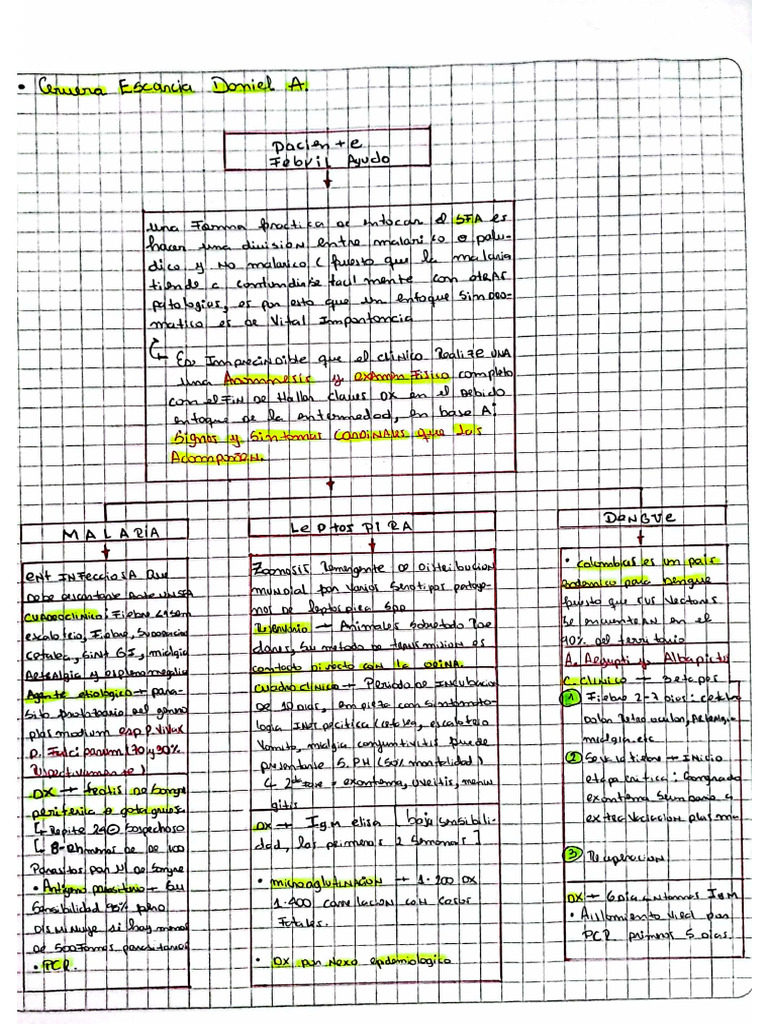 • Cervera Escancia Daniel A.
Paciente
Febril Agudo
una Forma practica de enfocar el SFA es
hacer una division entre malarico o palu-
dico y No malarico ( puesto que la malaria
tiende a confundirse facilmente con otras
patologias, es por esto que un enfoque Sindro-
matico es de Vital Importancia
Es Imprecindible que el clinico Realize UNA
una Anamnesis y examen Fisico completo
con el FIN de Hallar claves DX en el Debido
enfoque de la enfermedad, en base A:
Signos y Sintomas CARDINALES que los
Acompañen.
MALARIA
ENF INFecciosa que
Debe descartarse Ante un SFA
CUADRO clinico: Fiebre
escalofrio, Fiebre, Sudoracion
cefalea, Sint GI, mialgia
Artralgia y esplenomegalia
Agente etiologico → para-
sito protozoario del genero
plasmodium esp P. Vivax
P. Falciparum (70 y 90%
Respectivamente)
DX → frotis de Sangre
periferica o gota gruesa
↳ Repite 24 Sospechoso
↳ 8-12h menos de 100
Parasitos por Ul de Sangre
• Antigeno parasitario → Su
Sensibilidad 95% pero
disminuye si hay menos
de 500 Formas parasitarias
• PCR.
LeptosPIRA
Zoonosis Remergente de Distribucion
mundial por varios Serotipos patoge-
nos de leptospira Spp
Reservorio → Animales sobretodo Roe
dores, Su metodo de transmision es
contacto Directo con la ORINA.
Cuadro clinico → Periodo de INCUBACION
de 10 dias, empieza con sintomato-
logia INespecifica (cefalea, escalofrio
Vomito, mialgia conjuntivitis puede
presentarse S. PH (50% mortalidad)
↳ 2da fase = exantema, uveitis, menin
gitis
DX → Igm elisa [baja sensibili-
dad, las primeras 2 Semanas]
• microaglutinacion → 1·200 DX
1·400 correlacion con casos
Fatales.
• DX por Nexo epidemiologico
DeNGUE
• Colombia es un pais
endemico para Dengue
puesto que sus vectores
Se encuentran en el
90% del territorio
A. Aegypti y Albopictu
C. clinico → 3 etapas
1 Fiebre 2-7 Dias: cefalea
Dolor Retroocular, Artralgia
mialgia, etc
2 Sesa la fiebre → INicio
etapa critica:
exantema
extravacacion plasma
3 Recuperacion
DX → 6 Dia Antomas IGM
• Aislamiento Viral por
PCR primeros 5 dias.